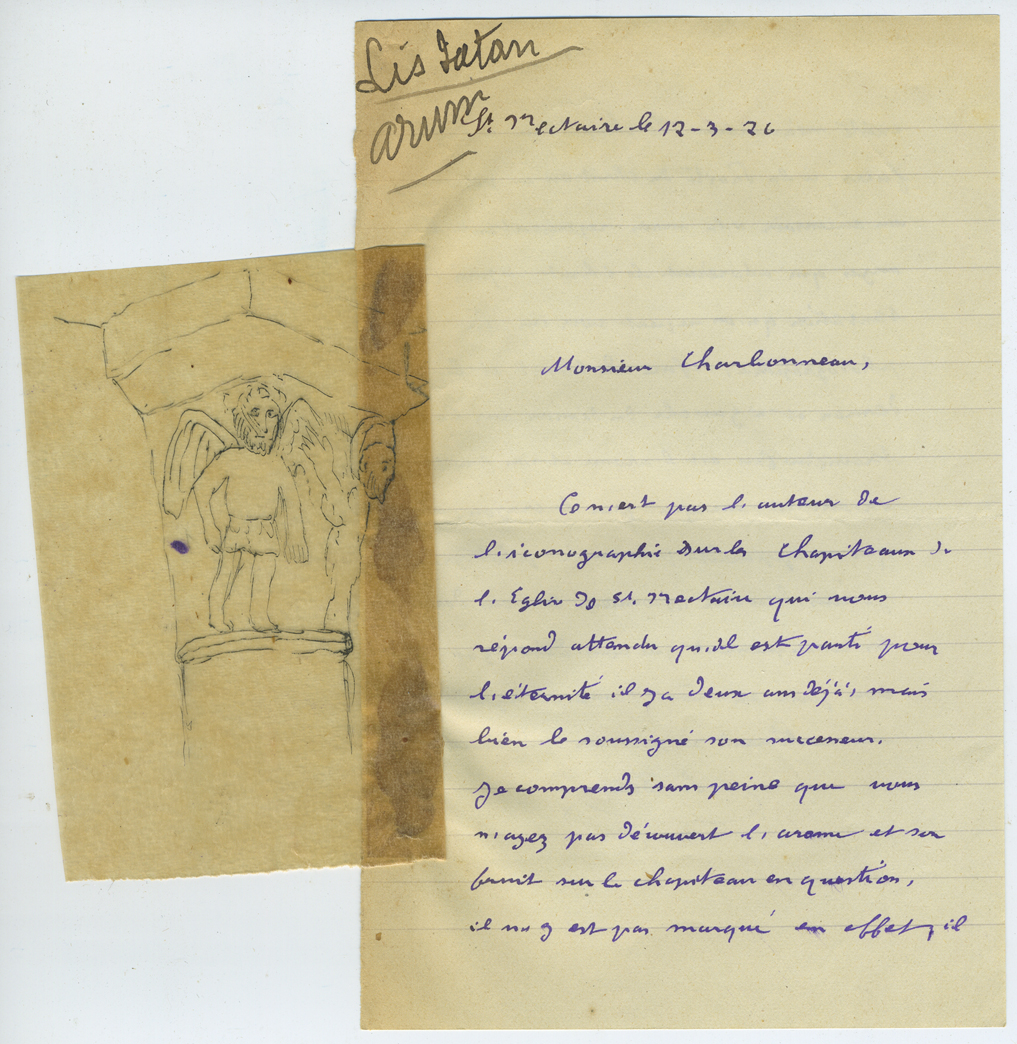 Lis Tatan
arum
St. Nectaire le 12-3-26
Monsieur Charbonneau,
Ce n'est pas l'auteur de
l'iconographie sur les chapiteaux de
l'Eglise de St. Nectaire qui vous
répond attendu qu'il est parti pour
l'éternité il y a deux ans déjà, mais
bien le soussigné son successeur.
Je comprends sans peine que vous
n'ayez pas découvert l' et son
fruit sur le chapiteau en question,
il n'y est pas marqué en effet, il